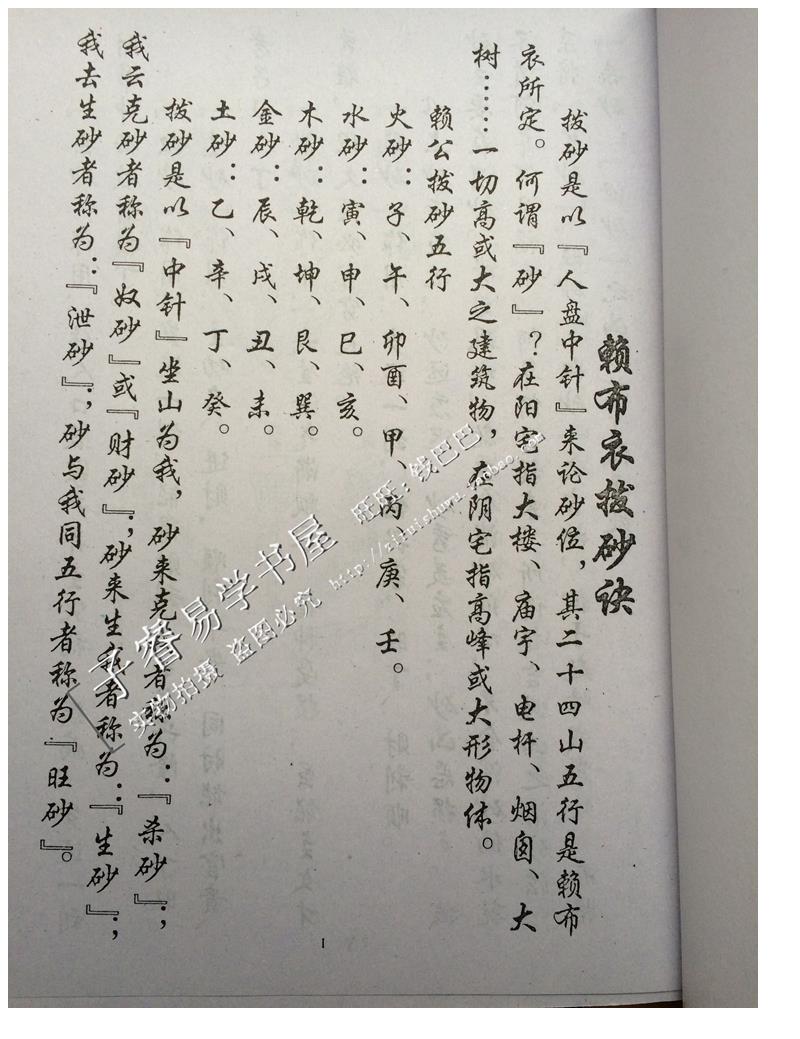 赖布衣拔砂诀
拨砂是以『人盘中针』来论砂位，其二十四山五行是赖布
衣所定。何谓『砂』？在阳宅指大楼、庙宇、电杆、烟囱、大
树……一切高或大之建筑物，在阴宅指高峰或大形物体。
赖公拨砂五行
火砂：子、午、卯酉、甲、丙、庚、壬。
水砂：寅、申、巳、亥。
木砂：乾、坤、艮、巽。
金砂：辰、戌、丑、未。
土砂：乙、辛、丁、癸。
拨砂是以『中针』坐山为我，砂来克我者称为：『杀砂』；
我云克砂者称为『奴砂』或『财砂』；砂来生我者称为：『生砂』；
我去生砂者称为：『泄砂』；砂与我同五行者称为『旺砂』。
1
子睿易学书屋 旺旺：钱巴巴
实物拍摄 盗图必究 http://ziruishuwu.taobao.com